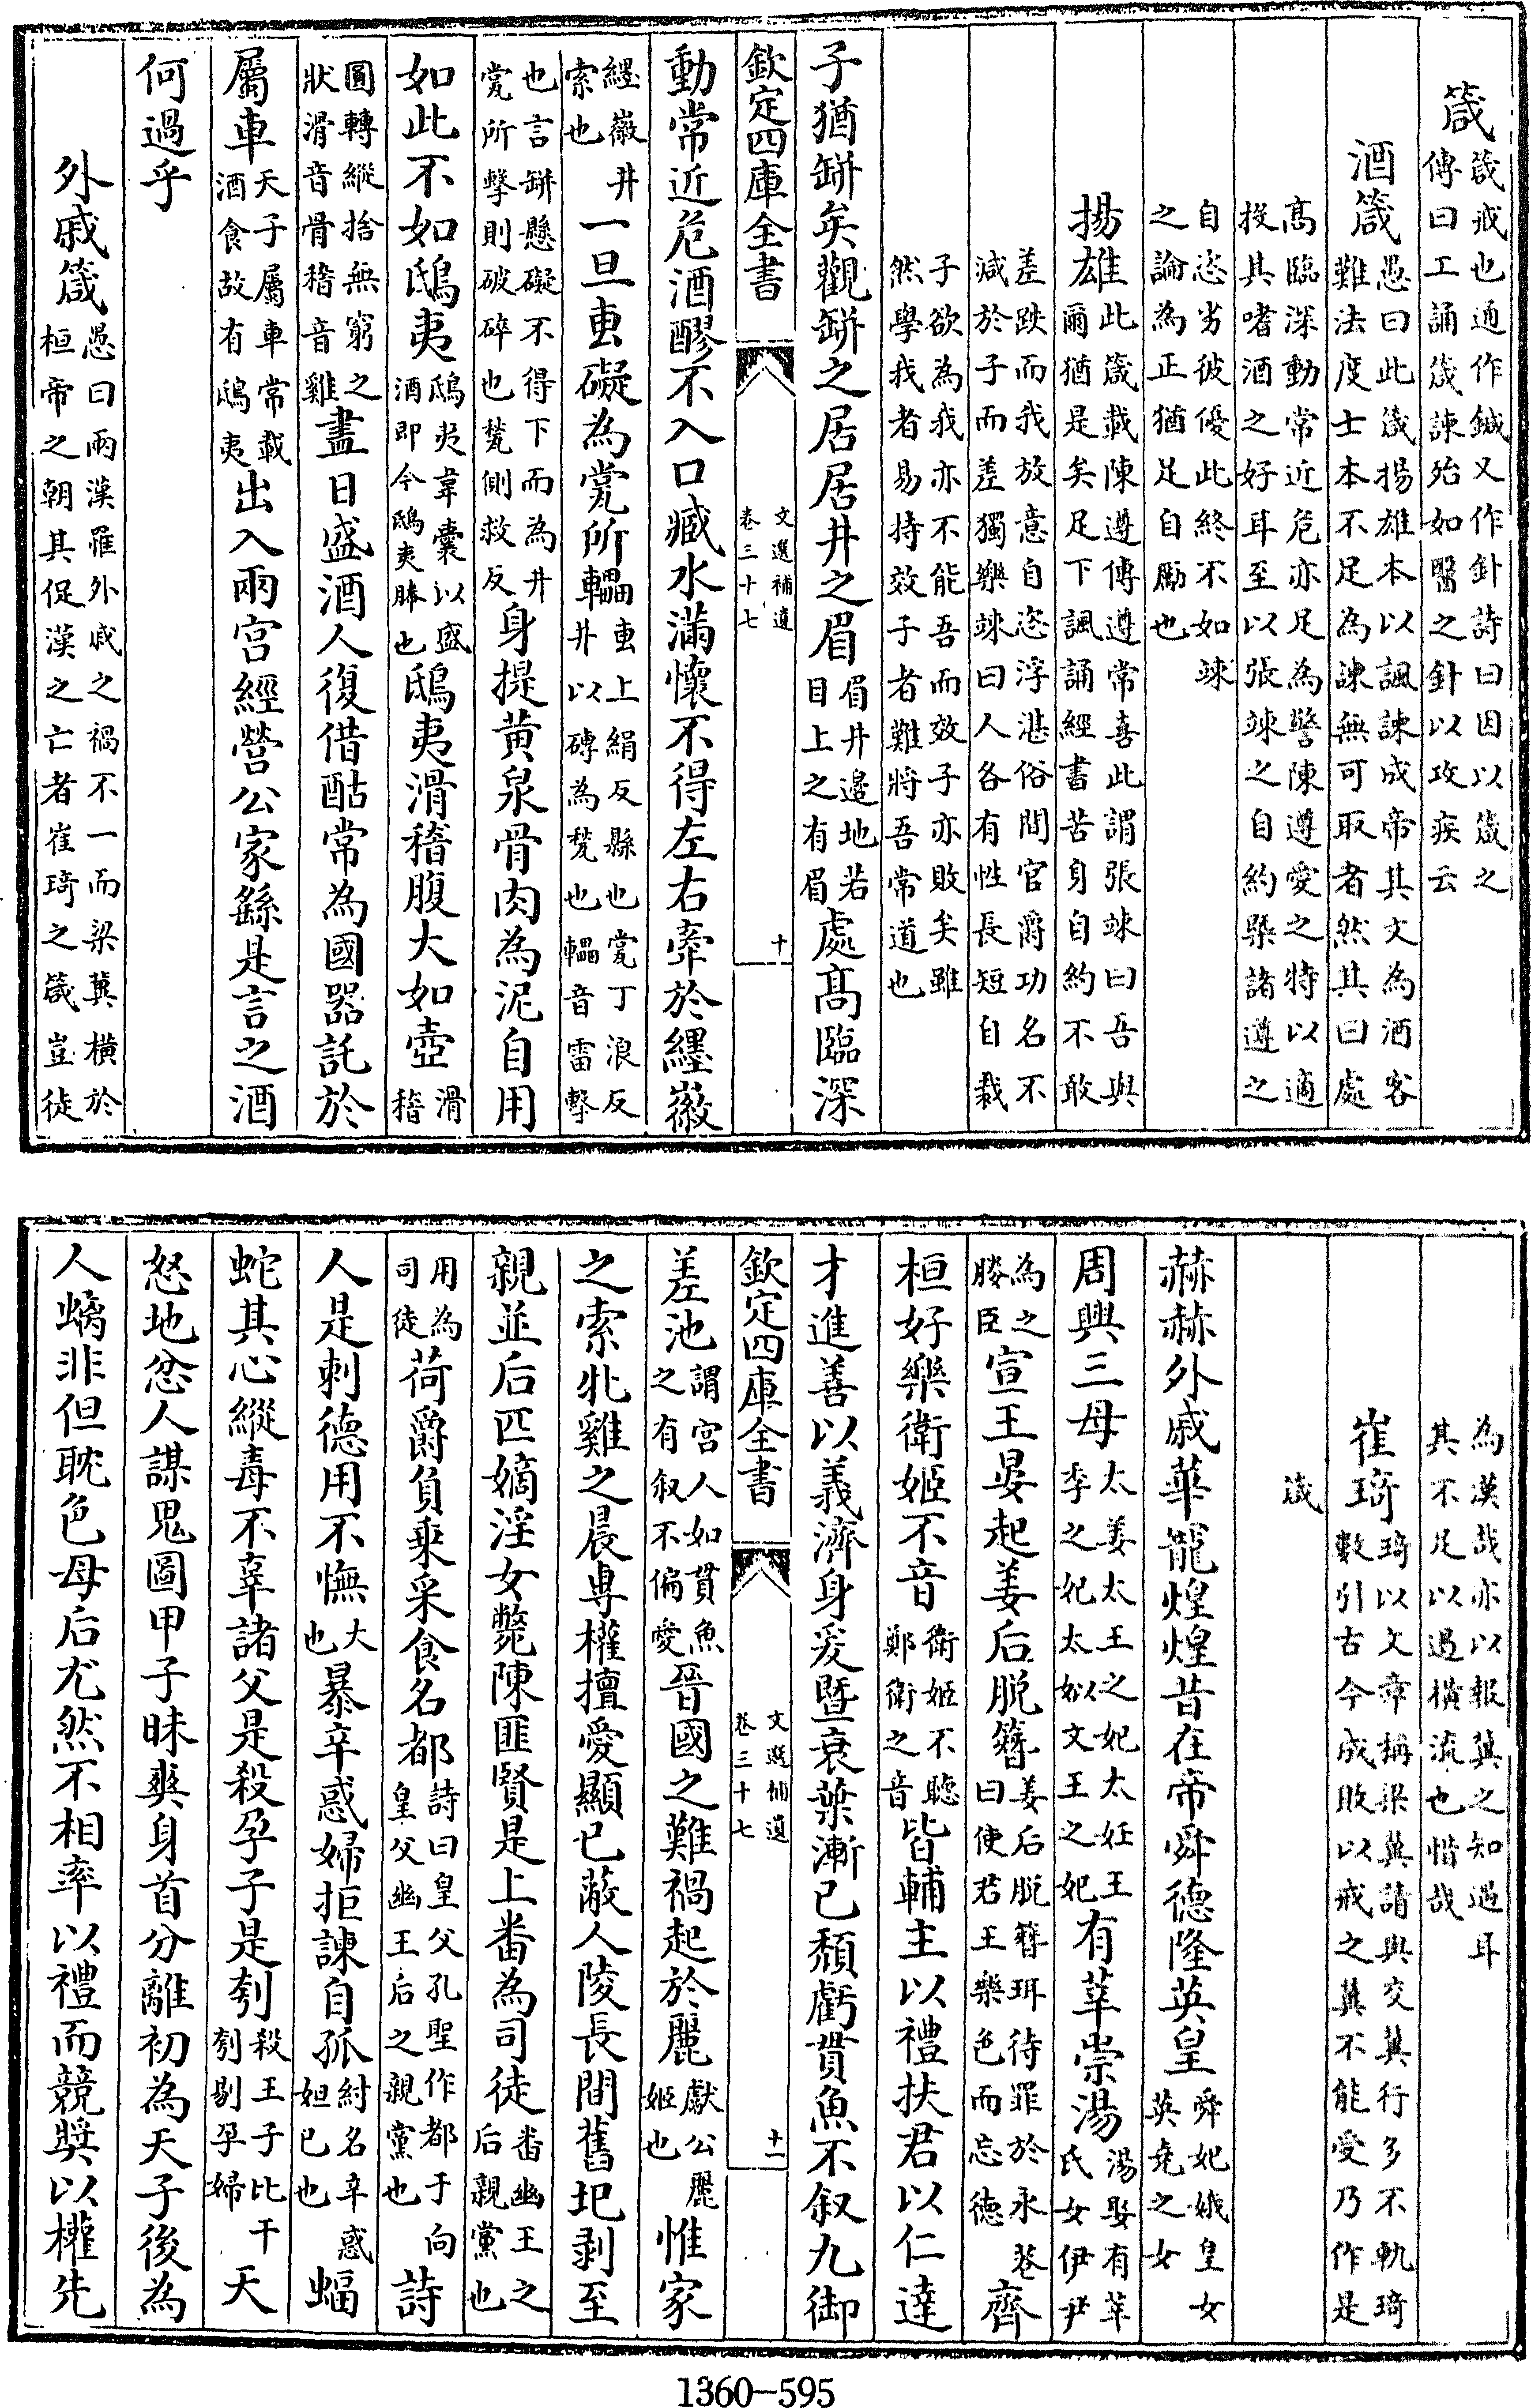 箴箴戒也通作鍼又作針詩曰因以箴之傳曰工誦箴諫殆如醫之針以攻疾云
酒箴愚曰此箴揚雄本以諷諫成帝其文為酒客難法度士本不足為諫無可取者然其曰處
高臨深動常近危亦足為警陳遵愛之特以適投其嗜酒之好耳至以張竦之自約槩諸遵之
自恣劣彼優此終不如竦之論為正猶足自勵也
揚雄此箴載陳遵傳遵常喜此謂張竦曰吾與爾猶是矣足下諷誦經書苦身自約不敢
差跌而我放意自恣浮湛俗間官爵功名不減於子而差獨樂竦曰人各有性長短自裁
子欲為我亦不能吾而效子亦敗矣雖然學我者易持效子者難將吾常道也
子猶缾矣觀缾之居居井之眉眉井邉地若目上之有眉處髙臨深
欽定四庫全書 文選補遺卷三十七 十
動常近危酒醪不入口臧水滿懷不得左右牽於纆徽
纆徽井索也一旦叀礙為瓽所轠叀上絹反縣也瓽丁浪反井以磚為甃也轠音雷擊
也言缾懸礙不得下而為井瓽所擊則破碎也甃側救反身提黄泉骨肉為泥自用
如此不如鴟夷鴟夷韋囊以盛酒即今鴟夷幐也鴟夷滑稽腹大如壺滑稽
圓轉縱捨無窮之狀滑音骨稽音雞盡日盛酒人復借酤常為國器託於
屬車天子屬車常載酒食故有鴟夷出入兩宫經營公家繇是言之酒
何過乎
外戚箴愚曰兩漢罹外戚之禍不一而梁冀橫於桓帝之朝其促漢之亡者崔琦之箴豈徒
為漢哉亦以報冀之知遇耳其不足以遏橫流也惜哉
崔琦琦以文章稱梁冀請與交冀行多不軌琦數引古今成敗以戒之冀不能受乃作是
箴
赫赫外戚華寵煌煌昔在帝舜德隆英皇舜妃娥皇女英堯之女
周興三母太姜太王之妃太妊王季之妃太姒文王之妃有莘崇湯湯娶有莘氏女伊尹
為之媵臣宣王晏起姜后脱簪姜后脱簪珥待罪於永巷曰使君王樂色而忘德齊
桓好樂衛姬不音衛姬不聽鄭衛之音皆輔主以禮扶君以仁達
才進善以義濟身爰暨衰葉漸已頽虧貫魚不叙九御
欽定四庫全書 文選補遺卷三十七 十一
差池謂宫人如貫魚之有叙不偏愛晉國之難禍起於麗獻公麗姬也惟家
之索牝雞之晨專權擅愛顯已蔽人陵長間舊圯剥至
親並后匹嫡淫女斃陳匪賢是上番為司徒番幽王之后親黨也
用為司徒荷爵負乘采食名都詩曰皇父孔聖作都于向皇父幽王后之親黨也詩
人是刺德用不憮大也暴辛惑婦拒諫自孤紂名辛惑妲已也蝠
蛇其心縱毒不辜諸父是殺孕子是刳殺王子比干刳剔孕婦天
怒地忿人謀鬼圖甲子昧爽身首分離初為天子後為
人螭非但耽色母后尤然不相率以禮而競奬以權先
1360-595